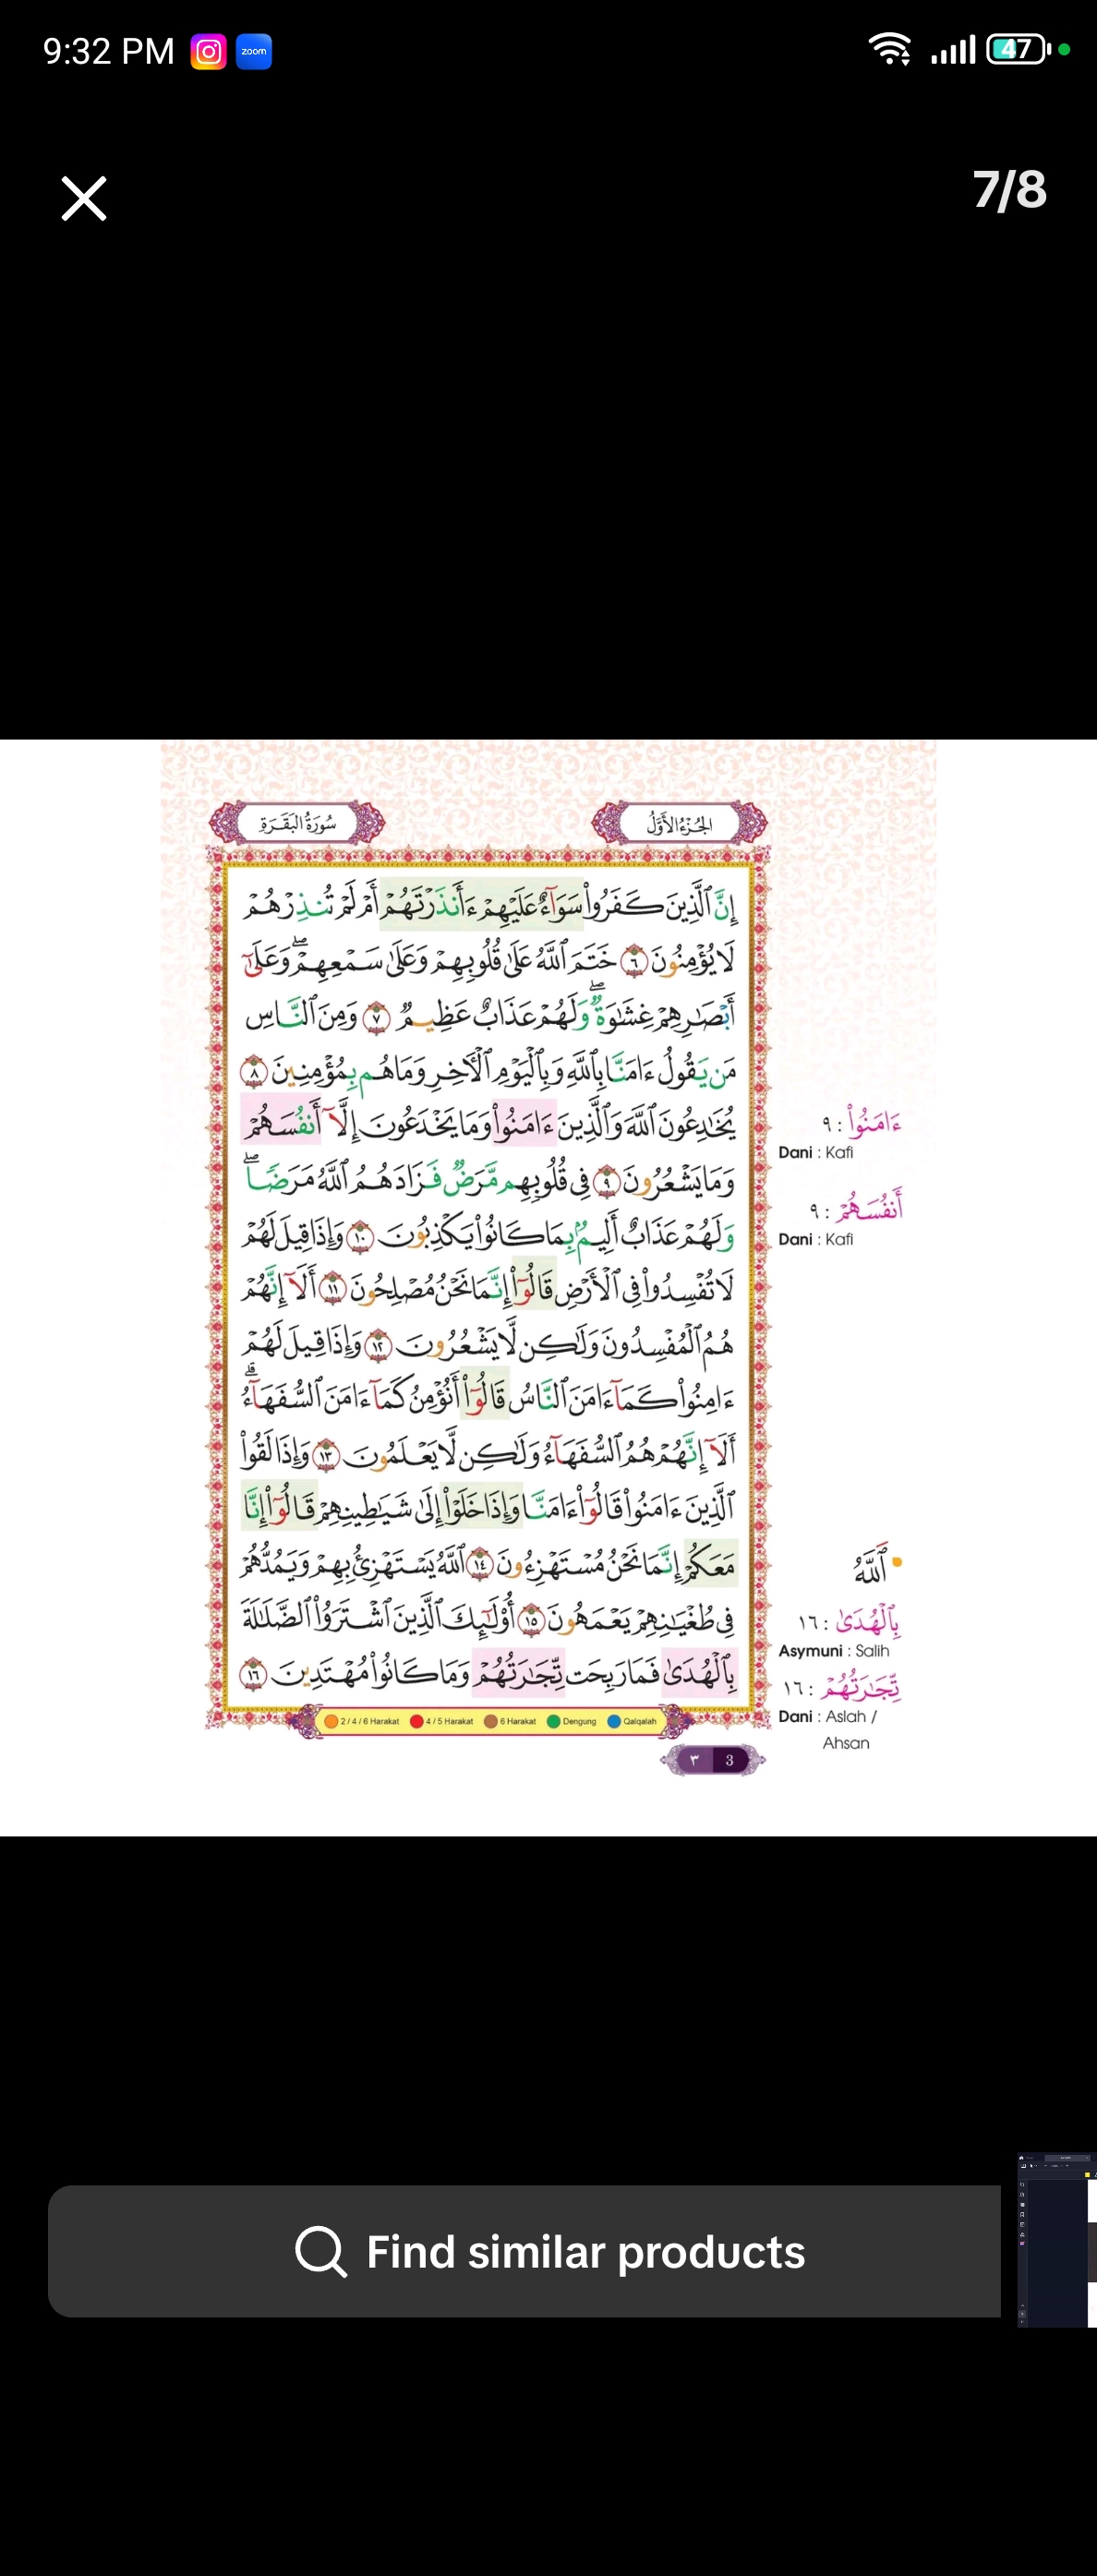 9:32 PM
zoom
47
7/8
سُورَةُ البَقَـرَةِ
الجُـزْءُ الأَوَّلُ
إِنَّ ٱلَّذِينَ كَفَرُوا۟ سَوَآءٌ عَلَيْهِمْ ءَأَنذَرْتَهُمْ أَمْ لَمْ تُنذِرْهُمْ
لَا يُؤْمِنُونَ ٦ خَتَمَ ٱللَّهُ عَلَىٰ قُلُوبِهِمْ وَعَلَىٰ سَمْعِهِمْ ۖ وَعَلَىٰٓ
أَبْصَـٰرِهِمْ غِشَـٰوَةٌ ۖ وَلَهُمْ عَذَابٌ عَظِيمٌ ٧ وَمِنَ ٱلنَّاسِ
مَن يَقُولُ ءَامَنَّا بِٱللَّهِ وَبِٱلْيَوْمِ ٱلْـَٔاخِرِ وَمَا هُم بِمُؤْمِنِينَ ٨
يُخَـٰدِعُونَ ٱللَّهَ وَٱلَّذِينَ ءَامَنُوا۟ وَمَا يَخْدَعُونَ إِلَّآ أَنفُسَهُمْ
وَمَا يَشْعُرُونَ ٩ فِى قُلُوبِهِم مَّرَضٌ فَزَادَهُمُ ٱللَّهُ مَرَضًا ۖ
وَلَهُمْ عَذَابٌ أَلِيمٌۢ بِمَا كَانُوا۟ يَكْذِبُونَ ١٠ وَإِذَا قِيلَ لَهُمْ
لَا تُفْسِدُوا۟ فِى ٱلْأَرْضِ قَالُوٓا۟ إِنَّمَا نَحْنُ مُصْلِحُونَ ١١ أَلَآ إِنَّهُمْ
هُمُ ٱلْمُفْسِدُونَ وَلَـٰكِن لَّا يَشْعُرُونَ ١٢ وَإِذَا قِيلَ لَهُمْ
ءَامِنُوا۟ كَمَآ ءَامَنَ ٱلنَّاسُ قَالُوٓا۟ أَنُؤْمِنُ كَمَآ ءَامَنَ ٱلسُّفَهَآءُ ۗ
أَلَآ إِنَّهُمْ هُمُ ٱلسُّفَهَآءُ وَلَـٰكِن لَّا يَعْلَمُونَ ١٣ وَإِذَا لَقُوا۟
ٱلَّذِينَ ءَامَنُوا۟ قَالُوٓا۟ ءَامَنَّا وَإِذَا خَلَوْا۟ إِلَىٰ شَيَـٰطِينِهِمْ قَالُوٓا۟ إِنَّا
مَعَكُمْ إِنَّمَا نَحْنُ مُسْتَهْزِءُونَ ١٤ ٱللَّهُ يَسْتَهْزِئُ بِهِمْ وَيَمُدُّهُمْ
فِى طُغْيَـٰنِهِمْ يَعْمَهُونَ ١٥ أُو۟لَـٰٓئِكَ ٱلَّذِينَ ٱشْتَرَوُا۟ ٱلضَّلَـٰلَةَ
بِٱلْهُدَىٰ فَمَا رَبِحَت تِّجَـٰرَتُهُمْ وَمَا كَانُوا۟ مُهْتَدِينَ ١٦
ءَامَنُوا۟ : ٩
Dani : Kafi
أَنفُسَهُمْ : ٩
Dani : Kafi
ٱللَّهُ
بِٱلْهُدَىٰ : ١٦
Asymuni : Salih
تِّجَـٰرَتُهُمْ : ١٦
Dani : Aslah /
Ahsan
2 / 4 / 6 Harakat 4 / 5 Harakat 6 Harakat Dengung Qalqalah
٣ 3
Find similar products